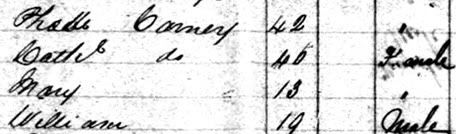 Thads Carney 42 "
Cath do 40 Female
Mary 13 "
William 19 Male